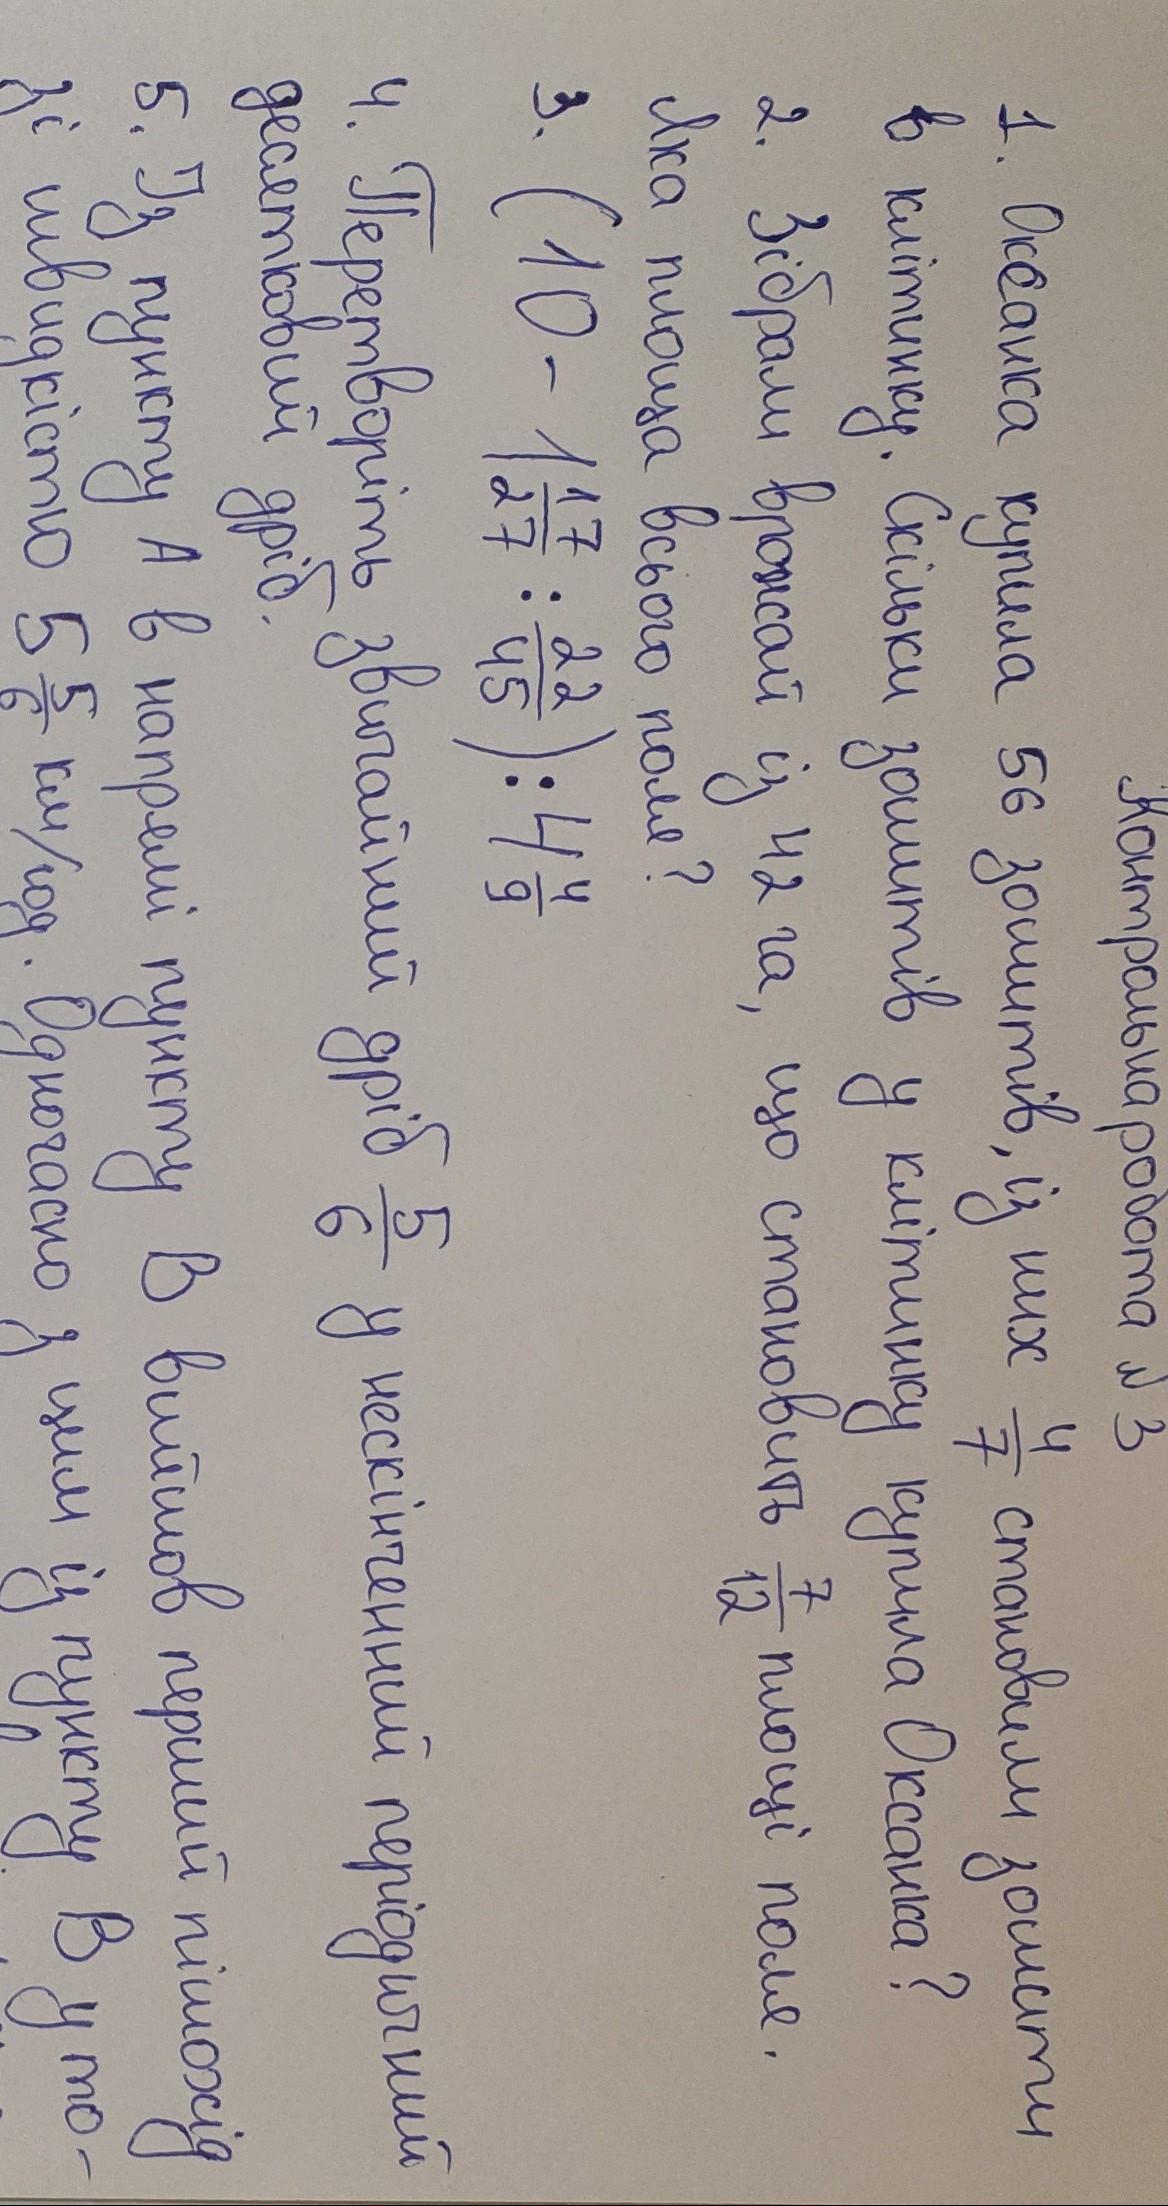 Контрольна робота №3
1. Оксанка купила 56 зошитів, із них 4/7 становили зошити
в клітинку. Скільки зошитів у клітинку купила Оксанка?
2. Зібрали врожай із 42 га, що становить 7/12 площі поля.
Яка площа всього поля?
3. (10 - 1 17/27 : 22/45) : 4 4/9
4. Перетворіть звичайний дріб 5/6 у нескінченний періодичний
десятковий дріб.
5. Із пункту А в напрямі пункту В вийшов перший пішохід
зі швидкістю 5 5/6 км/год. Одночасно з цим із пункту В у то-